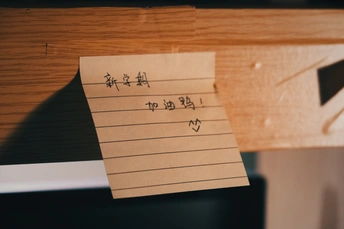 新学期
加油鸭!